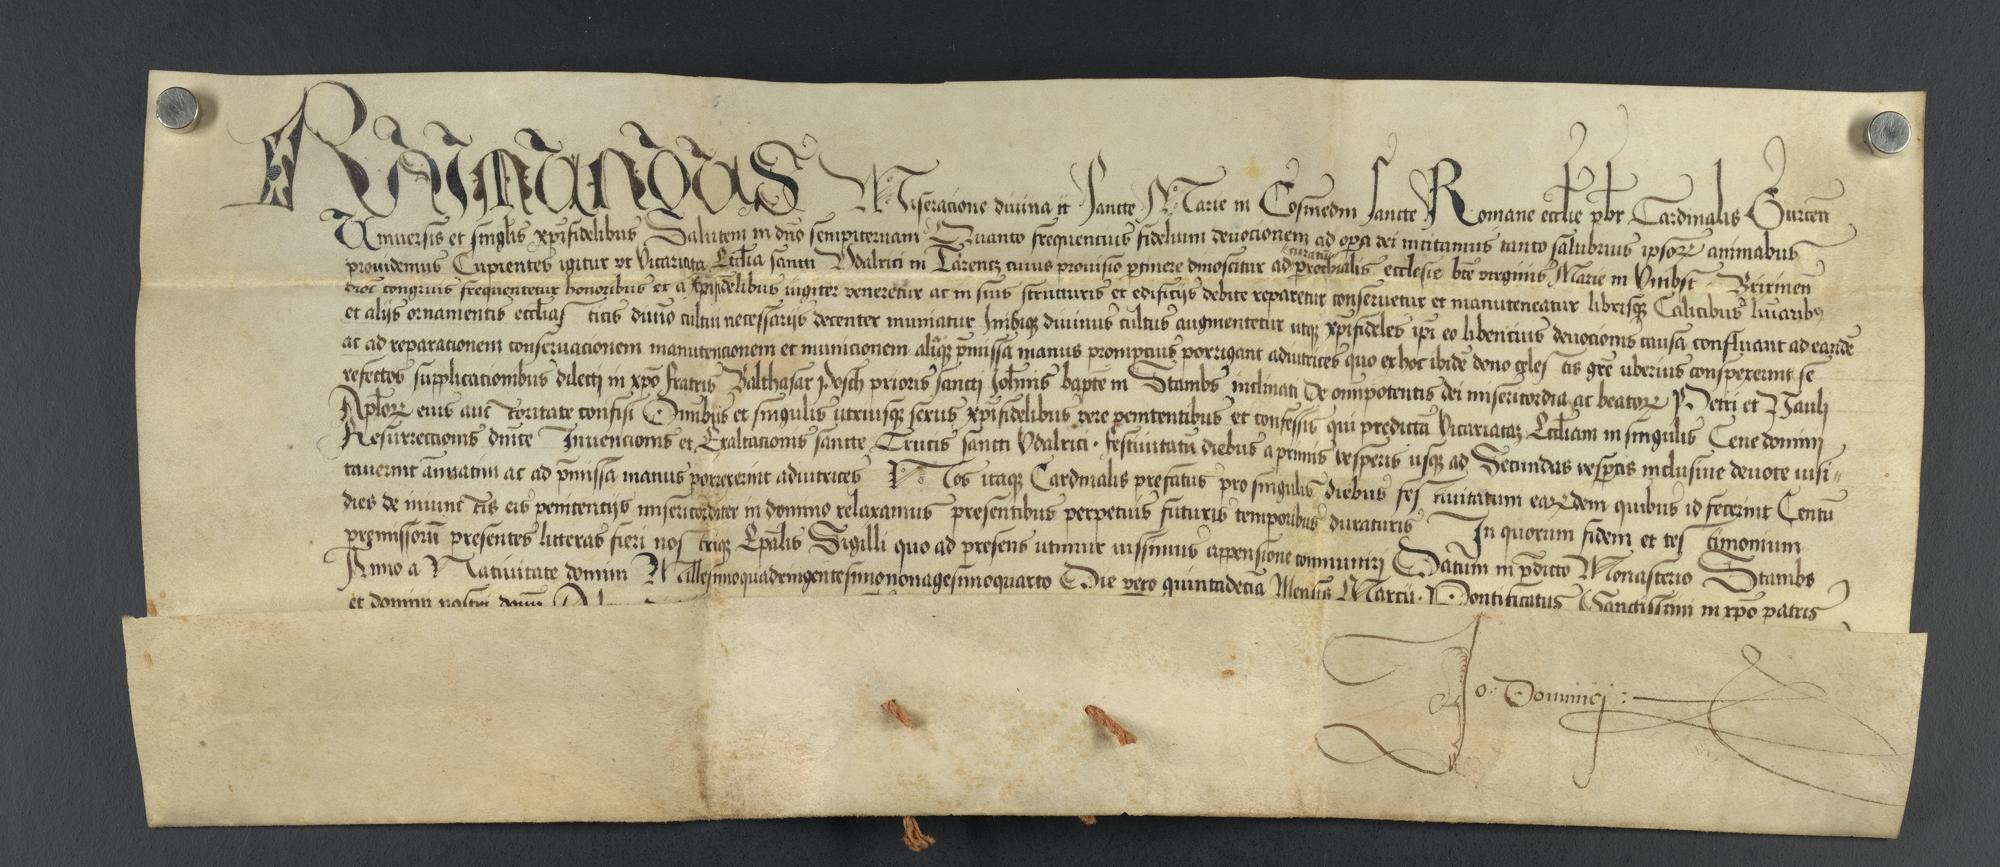 Raymundus Miseracione divina tt Sancte Marie in Cosmedin sancte Romane eccl̄ie p̄br Cardinalis Gurcen̄
Universis et singl̄is xp̄ifidelibus Salutem in dn̄o sempiternam Quanto frequencius fidelium devocionem ad op̄a dei incitamus tanto salubrius ipsoꝝ animabus
providemus Cupientes igitur ut Vicariata Eccl̄ia sancti Udalrici in Tarentz cuius provisio ꝑtinere dinoscitur ad curatū ꝑrochialis ecclesie bt̄e virginis Marie in Umbst Brixinen̄
dioc̄ congruis frequentetur honoribus et a xp̄ifidelibus iugiter veneretur ac in suis structuris et edificijs debite reparetur conservetur et manuteneatur librisqꝫ Calicibus luīaribꝰ
et alijs ornamentis eccl̄iasticis divīo cultui necessarijs decenter muniatur Inibiqꝫ divinus cultus augmentetur utqꝫ xp̄ifideles ip̄i eo libencius devocionis causa confluant ad eandē
ac ad reparacionem conservacionem manutencionem et municionem aliāqꝫ p̄missa manus prompcius porrigant adiutrices quo ex hoc ibidē dono celestis gr̄e uberius conspexerint se
refectos supplicacionibus dilecti in xp̄o fratris Balthasar Posch prioris sancti Joh̄nis bapt̄e in Stambs inclinati De om̄ipotentis dei misericordia ac beatoꝝ Petri et Pauli
Apl̄oꝝ eius auctoritate confisi Om̄ibus et singulis utriusqꝫ sexus xp̄ifidelibus vere penitentibus et confessis qui predictā Vicariataꝫ Eccl̄iam in singulis Cene domini
Resurrectionis dn̄ice Invencionis et Exaltacionis sancte Crucis sancti Udalrici festivitatū diebus a primis vesperis usqꝫ ad Secundas vesꝑas inclusive devote visi//
taverint an̄uatim ac ad p̄missa manus porrexerint adiutrices Nos itaqꝫ Cardinalis prefatus pro singulis diebus festivitatum earꝝdem quibus id fecerint Centū
dies de iniunctis eis penitencijs misericorditer in domino relaxamus presentibus perpetuis futuris temporibus duraturis In quorum fidem et testimonium
premissorū presentes litteras fieri nostriqꝫ Ep̄alis Sigilli quo ad presens utimur iussimus appensione communiri Datum in p̄dicto Monasterio Stambs
Anno a Nativitate domini Millesimoquadringentesimononagesimoquarto Die vero quintadecīa Mensis Marcii Pontificatus Sanctissimi in xp̄o patris
et domini nostri domī
Jo. Dominici